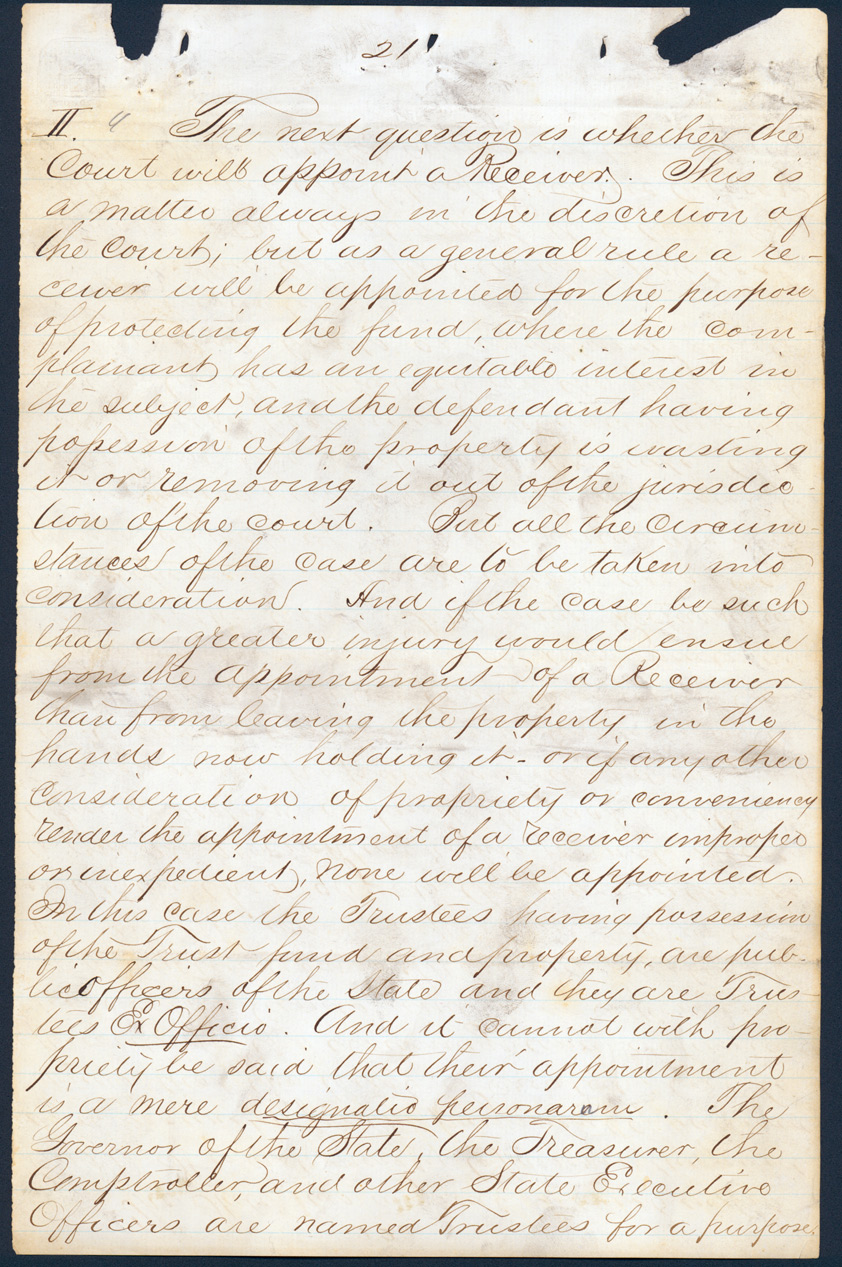 21
II. 4 The next question is whether the
Court will appoint a Receiver. This is
a matter always in the discretion of
the Court; but as a general rule a re-
ceiver will be appointed for the purpose
of protecting the fund, where the com-
plainant has an equitable interest in
the subject, and the defendant having
possession of the property is wasting
it or removing it out of the jurisdic-
tion of the court. But all the circum-
stances of the case are to be taken into
consideration. And if the case be such
that a greater injury would ensue
from the appointment of a Receiver
than from leaving the property in the
hands now holding it - or if any other
consideration of propriety or conveniency
render the appointment of a receiver improper
or inexpedient, none will be appointed.
In this case the Trustees having possession
of the Trust fund and property, are pub-
lic officers of the State and they are Trus-
tees Ex Officio. And it cannot with pro-
priety be said that their appointment
is a mere designatio personarum. The
Governor of the State, the Treasurer, the
Comptroller, and other State Executive
Officers are named Trustees for a purpose,